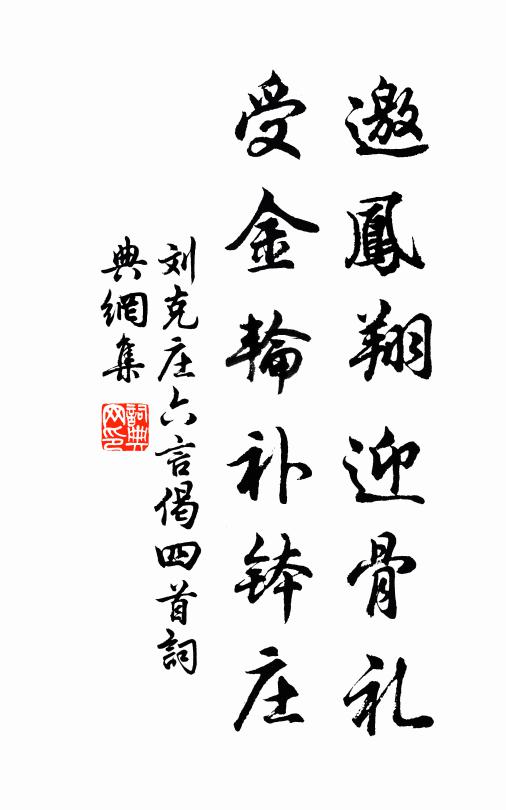 邀鳳翔迎骨礼
受金輪补鉢庄
刘克庄六言偈四首詞
典網集
詞典
网印